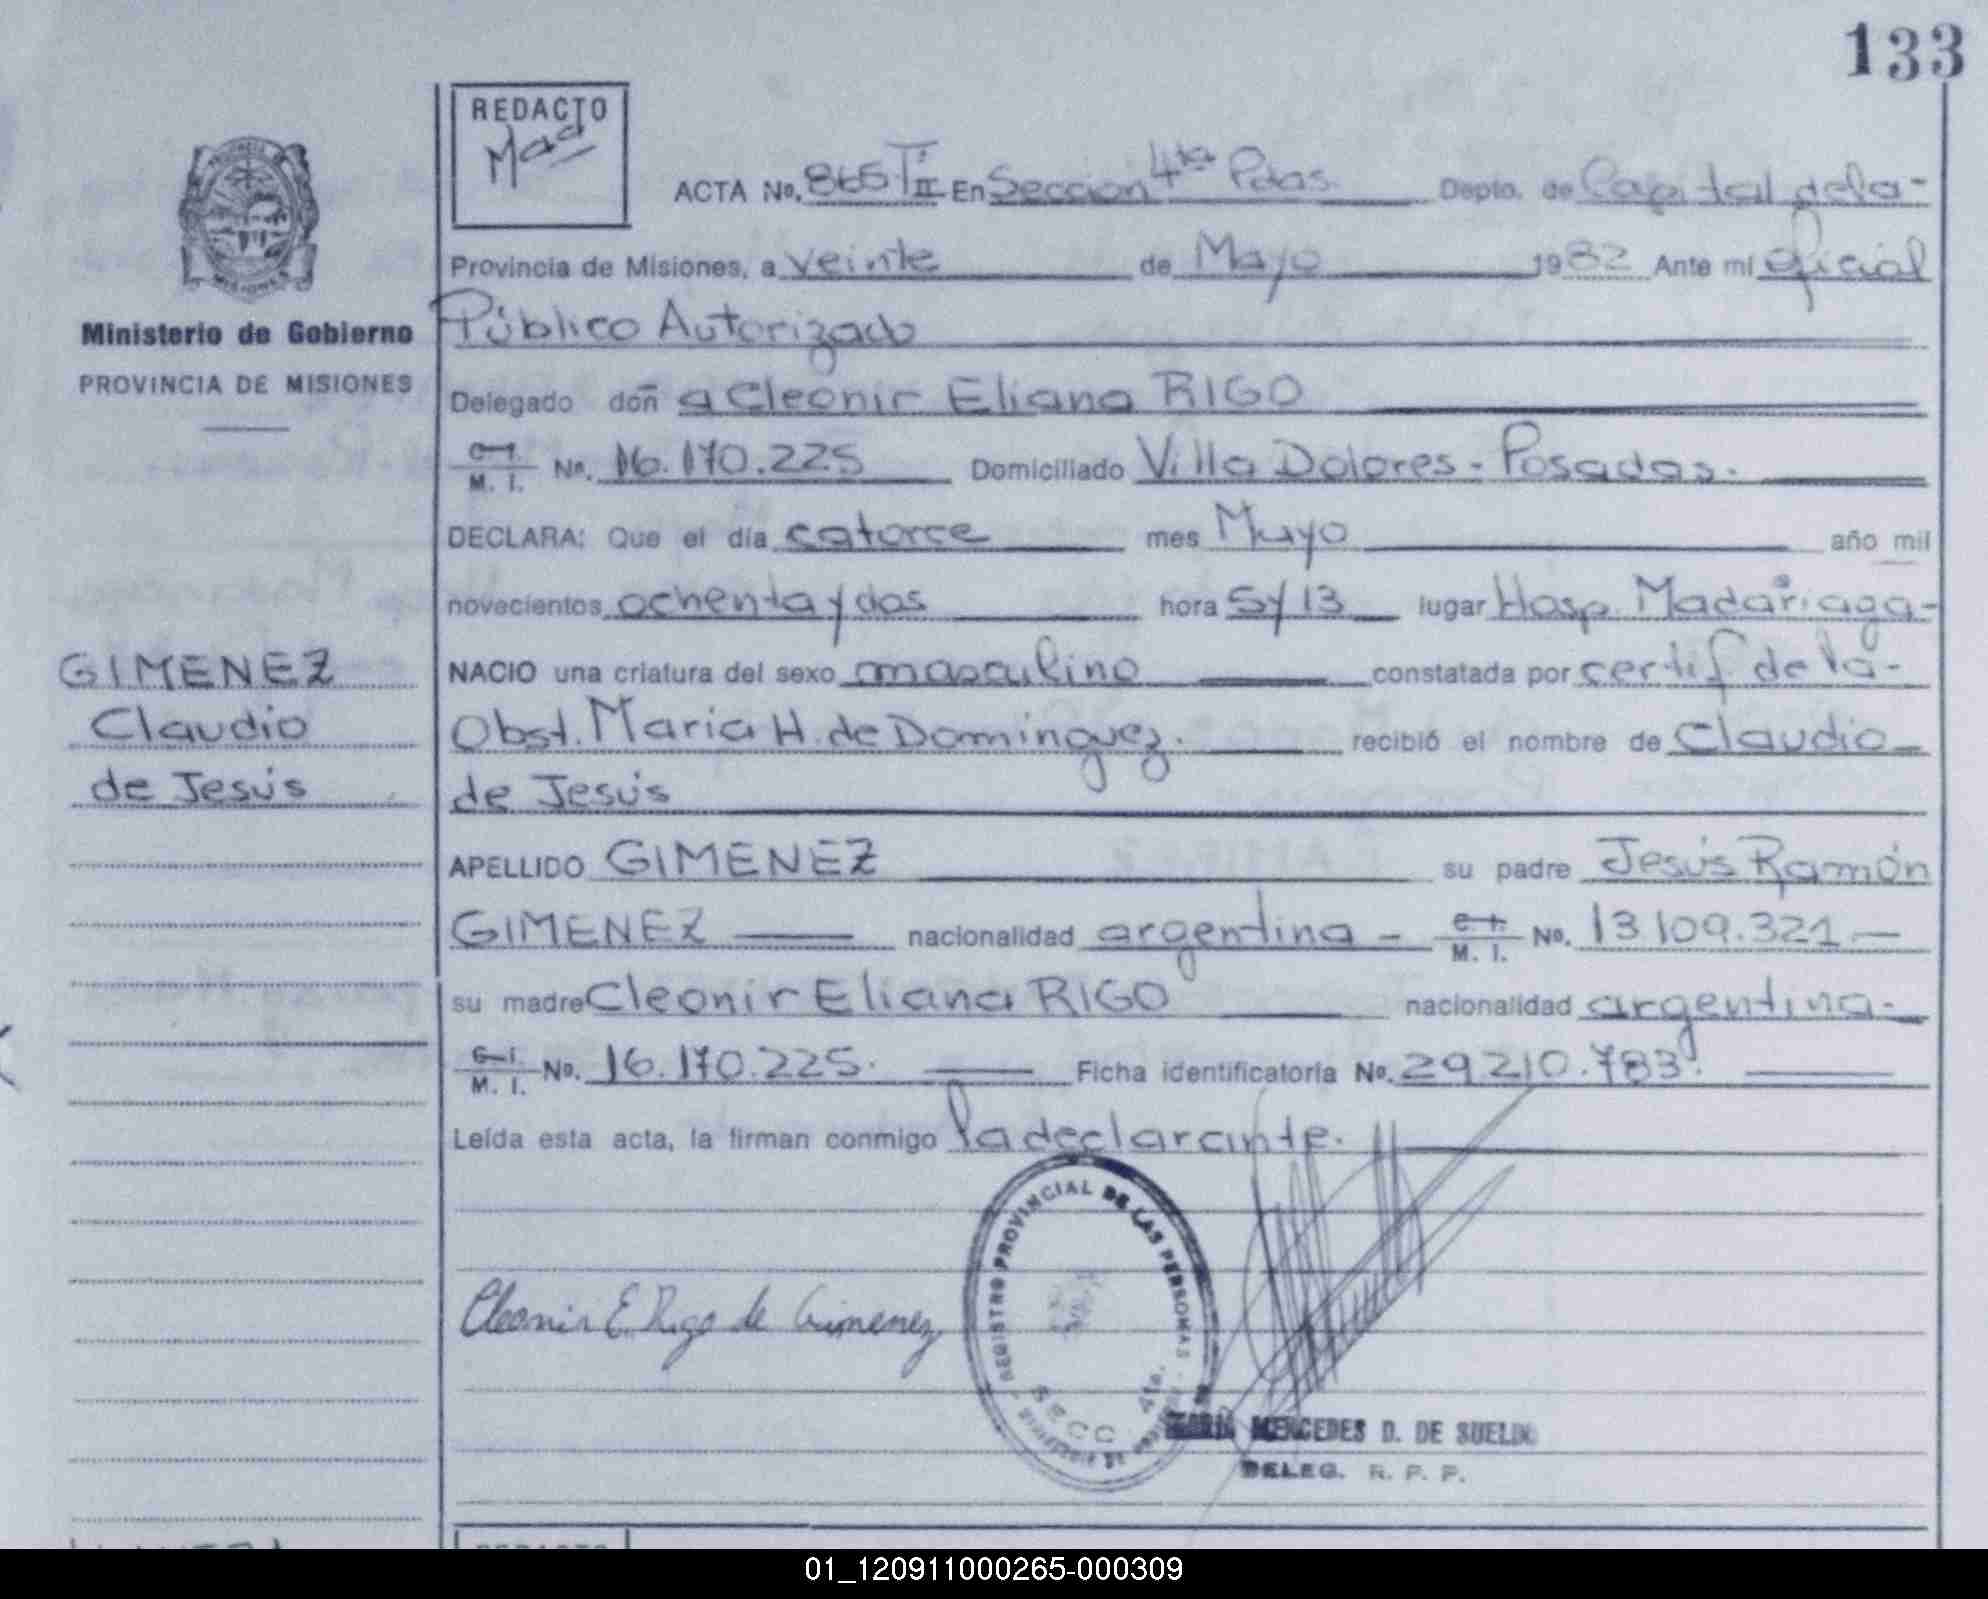 133
REDACTO
ACTA No. 865 T III En Sección 4ta Pdas. Depto. de Capital dela-
Provincia de Misiones, a veinte de Mayo 1982 Ante mí oficial
Público Autorizado
Delegado doñ a Cleonir Eliana RIGO
C. I. M. I. No. 16.170.225 Domiciliado Villa Dolores - Posadas.
DECLARA: Que el día catorce mes Mayo año mil
novecientos ochenta y dos hora 5 y 13 lugar Hosp. Madariaga-
NACIO una criatura del sexo masculino constatada por certif de la-
Obst. Maria H. de Dominguez. recibió el nombre de Claudio
de Jesús
APELLIDO GIMENEZ su padre Jesús Ramón
GIMENEZ nacionalidad argentina - C. I. M. I. No. 13.109.321.-
su madre Cleonir Eliana RIGO nacionalidad argentina.
C. I. M. I. No. 16.170.225. Ficha identificatoria No. 29.210.783.
Leída esta acta, la firman conmigo la declarante.
PROVINCIA DE MISIONES
Ministerio de Gobierno
PROVINCIA DE MISIONES
GIMENEZ
Claudio
de Jesús
Cleonir E. Rigo de Gimenez
REGISTRO PROVINCIAL DE LAS PERSONAS
SECC 4ta.
MARIA MERCEDES D. DE SUELDO
DELEG. R. P. P.
REDACTO
01_120911000265-000309